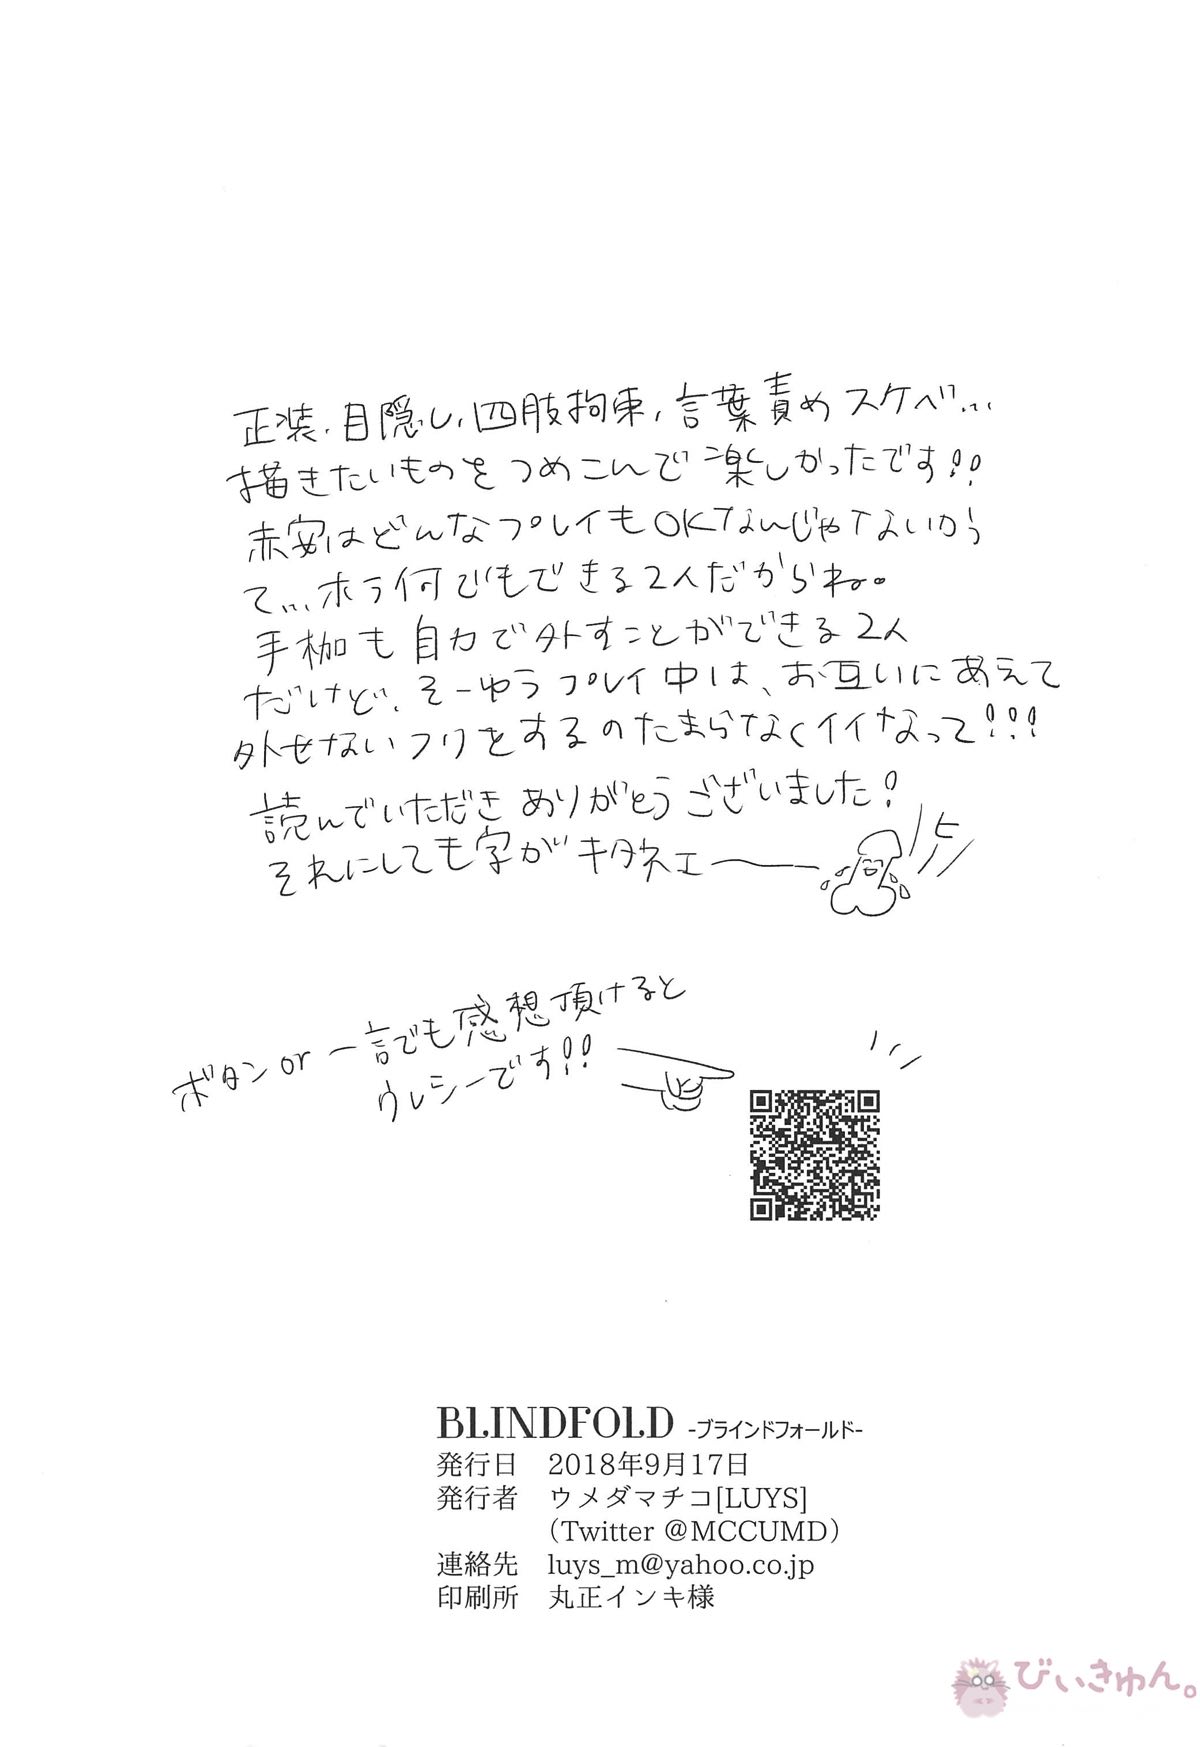 正装、目隠し、四肢拘束、言葉責めスケベ…
描きたいものをつめこんで楽しかったです!!
赤安はどんなプレイもOKなんじゃないかっ
て…ホラ何でもできる2人だからね。
手枷も自力で外すことができる2人
だけど、そーゆうプレイ中は、お互いにあえて
外せないフリをするのたまらなくイイなって!!!
読んでいただきありがとうございました!
それにしても字がキタネェー
ヒー
ボタンor一言でも感想頂けると
ウレシーです!!
BLINDFOLD -ブラインドフォールド-
発行日 2018年9月17日
発行者 ウメダマチコ[LUYS]
(Twitter @MCCUMD)
連絡先 luys_m@yahoo.co.jp
印刷所 丸正インキ様
びぃきゅん。